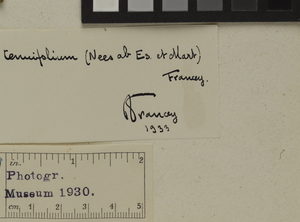 tenuifolium (Nees ab Es. et Mart)
Francey.
Francey
1933
in. 1 2
Photogr.
Museum 1930.
cm 1 2 3 4 5